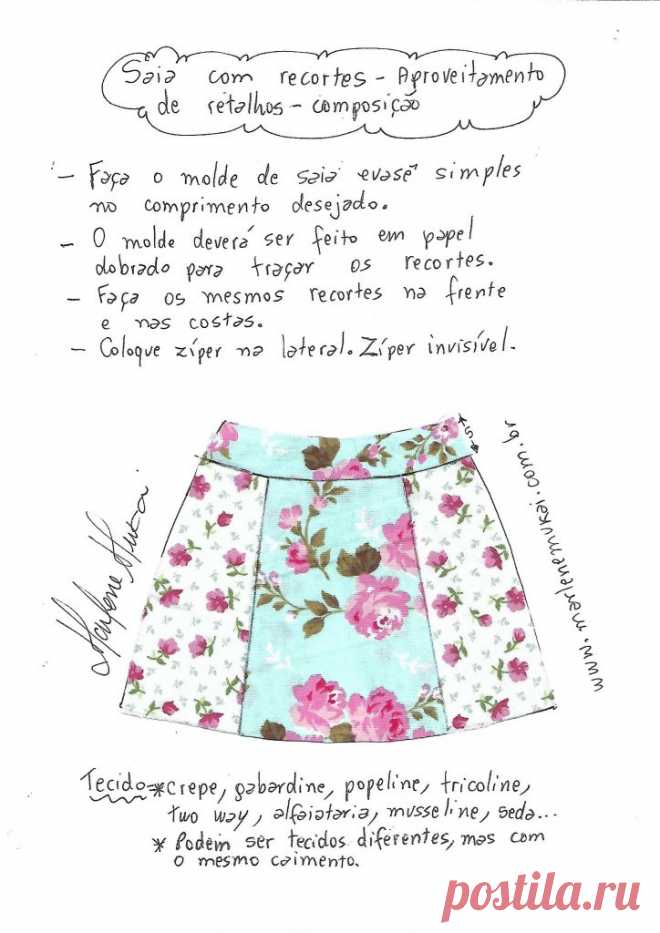 Saia com recortes - Aproveitamento
de retalhos - composição
- Faça o molde de saia evasê simples
no comprimento desejado.
- O molde deverá ser feito em papel
dobrado para traçar os recortes.
- Faça os mesmos recortes na frente
e nas costas.
- Coloque zíper na lateral. Zíper invisível.
5
www.marlenemukai.com.br
Marlene Mukai
Tecido=*crepe, gabardine, popeline, tricoline,
two way, alfaiataria, musseline, seda...
* Podem ser tecidos diferentes, mas com
o mesmo caimento.
postila.ru